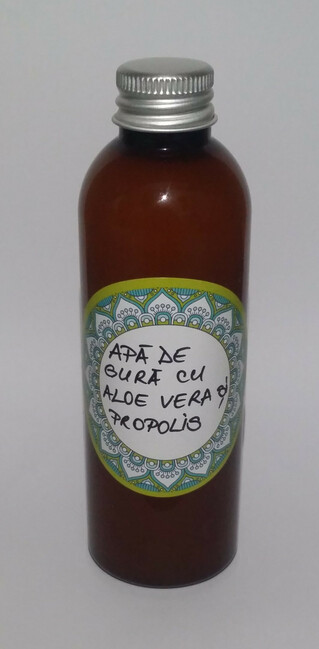 APĂ DE
GURĂ CU
ALOE VERA și
PROPOLIS